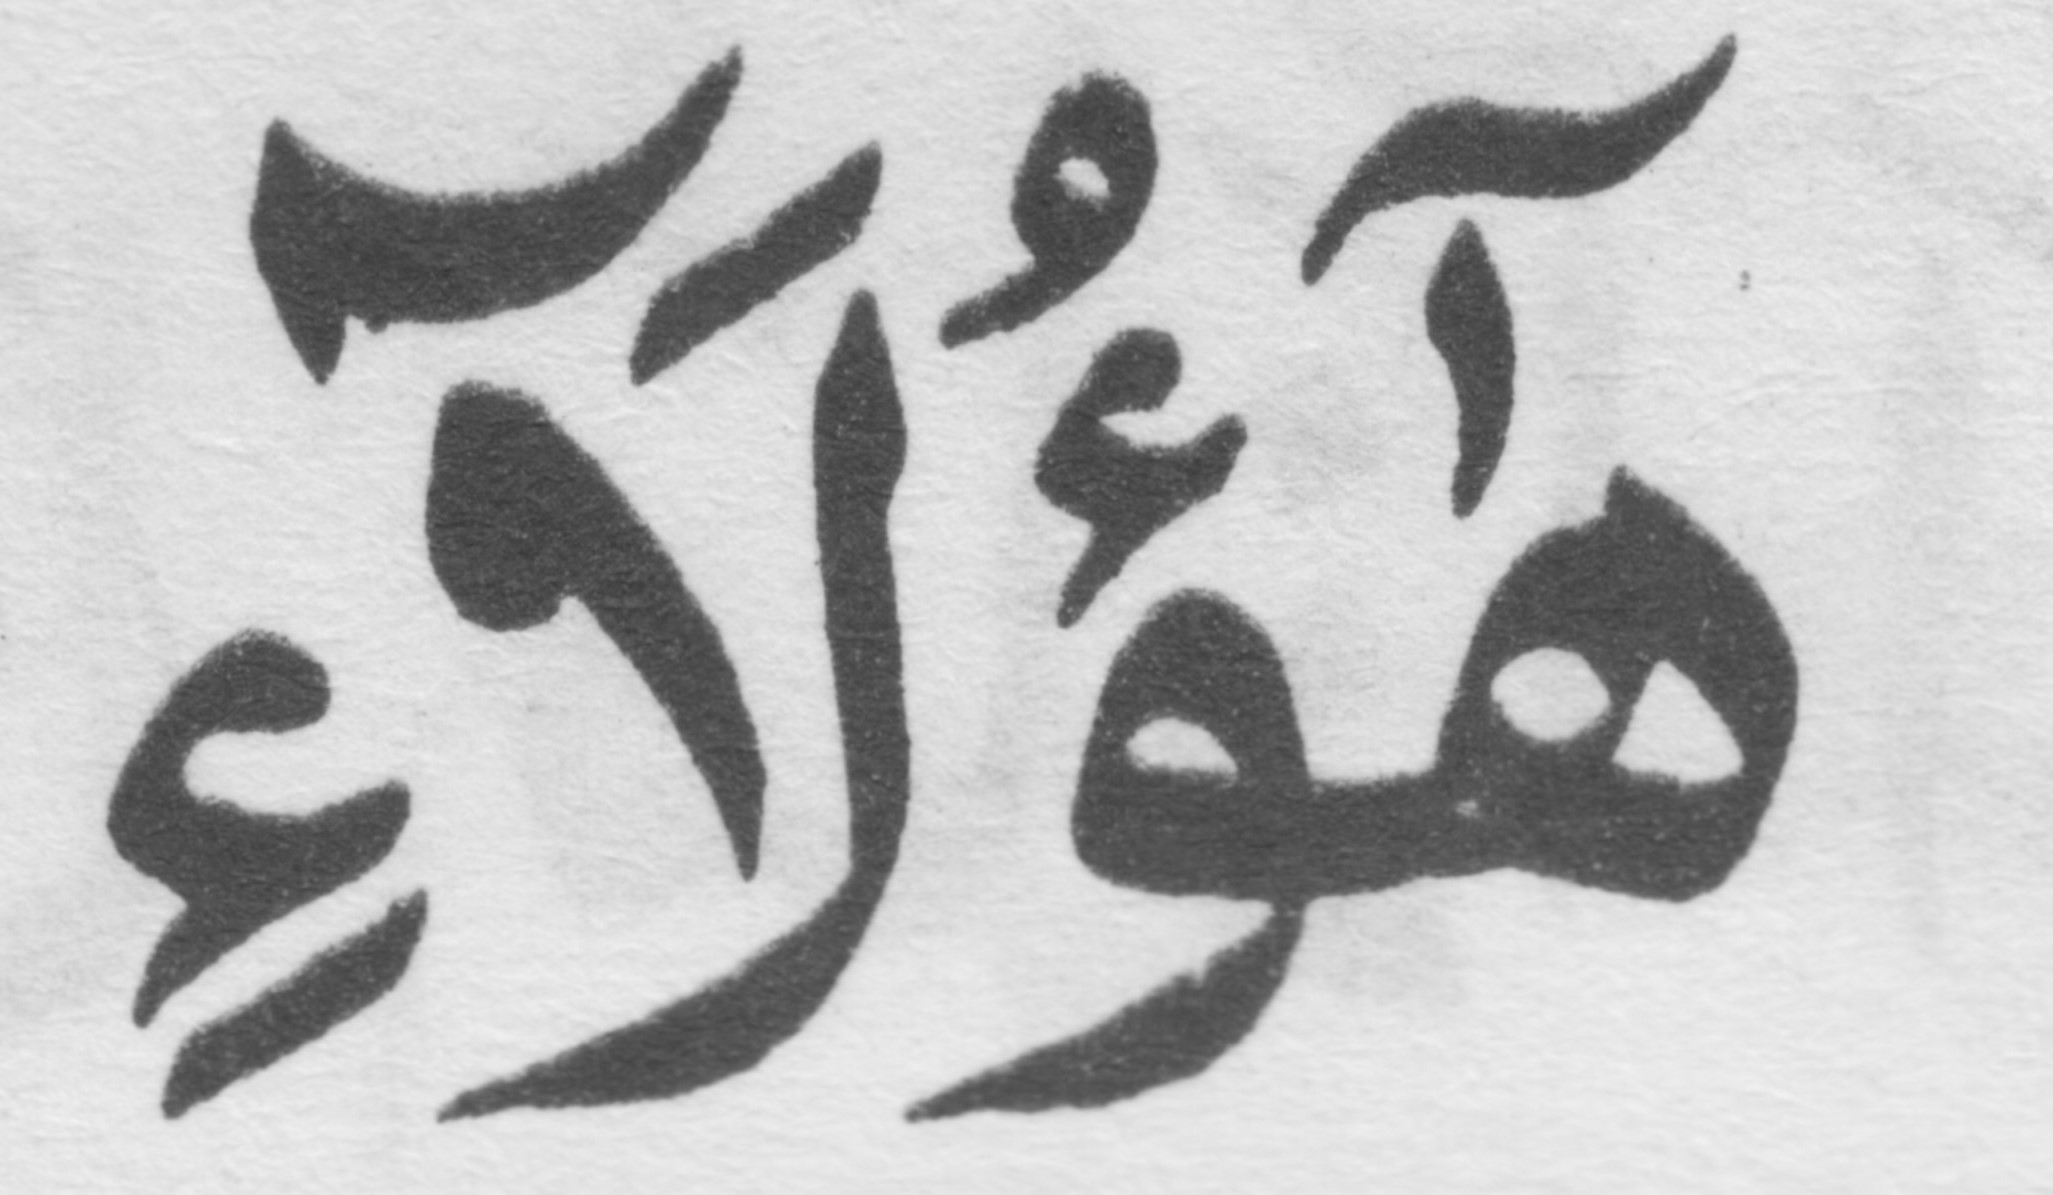 هٰٓؤُلَآءِ